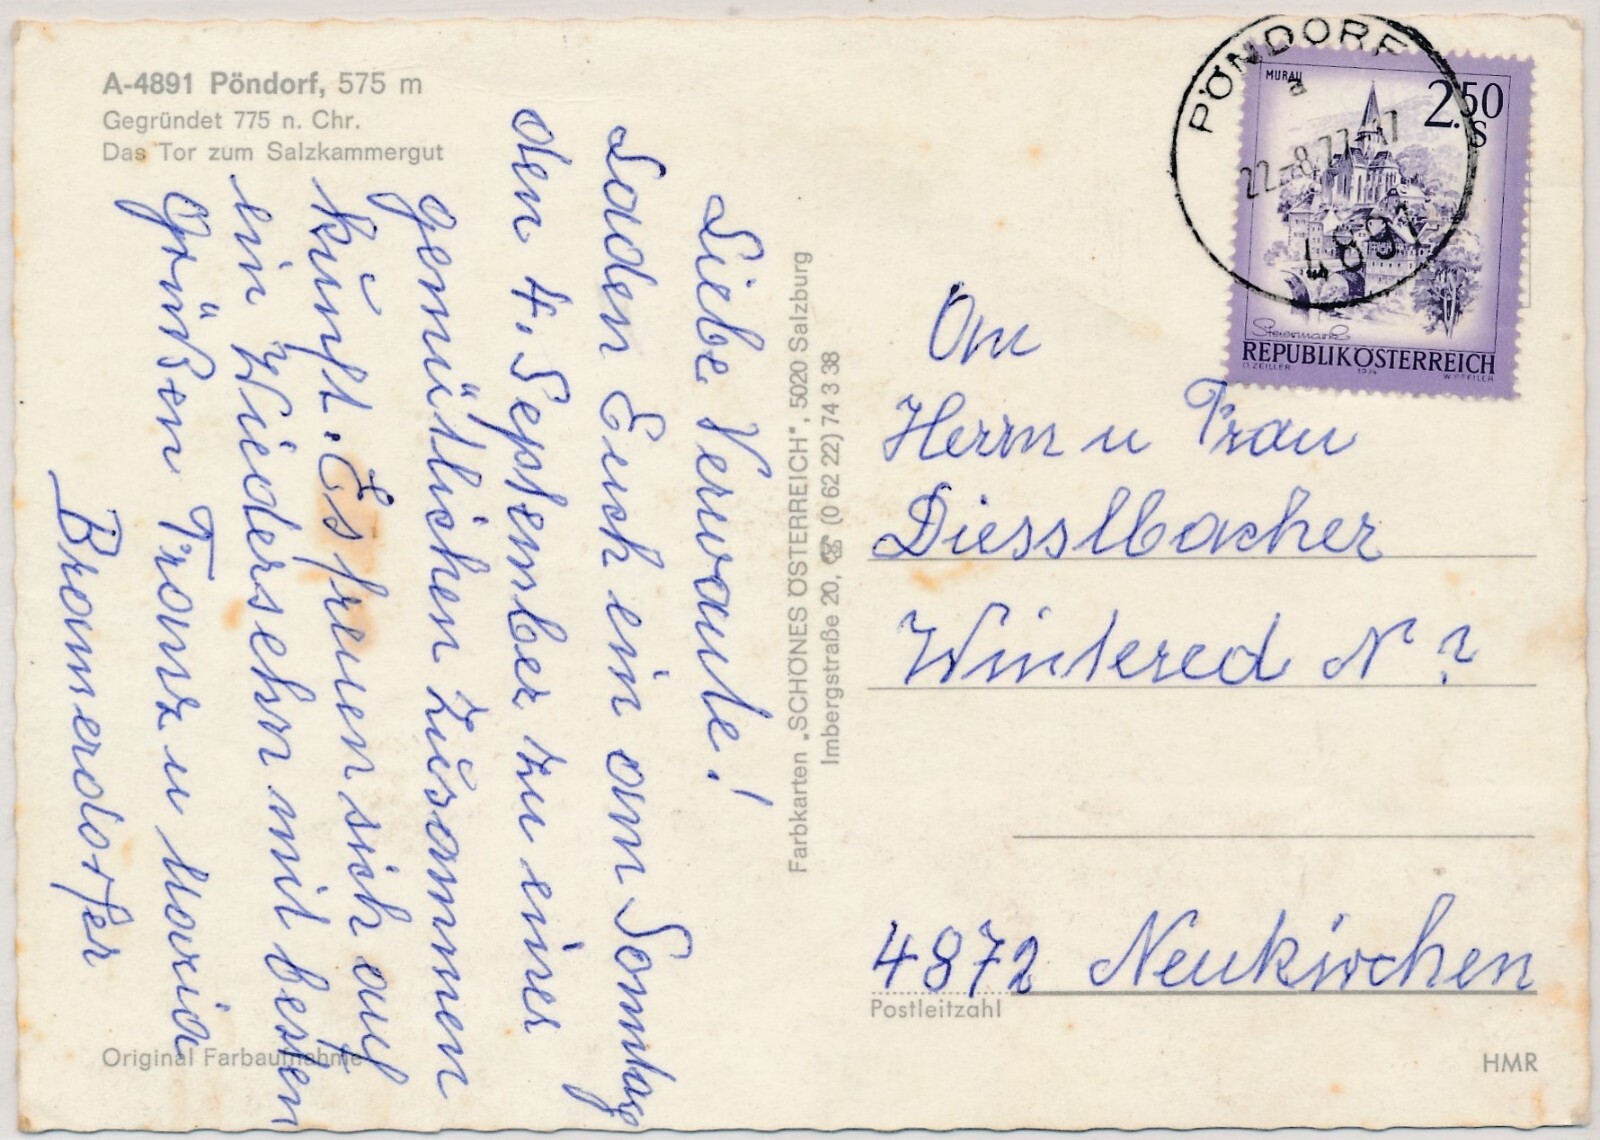 A-4891 Pöndorf, 575 m
Gegründet 775 n. Chr.
Das Tor zum Salzkammergut
Liebe Verwante!
Laden Euch ein am Sonntag
den 4. September zu einer
gemütlichen Zusammen
kunft. Es freuen sich auf
ein Wiedersehn mit besten
Grüßen Franz u Maria
Bramerdorfer
Original Farbaufnahme
Farbkarten „SCHÖNES ÖSTERREICH“, 5020 Salzburg
Imbergstraße 20, ☎ (0 62 22) 74 3 38
PÖNDORF
a
22.-8.77-17
4891
MURAU
2.50
S
Steiermark
REPUBLIK ÖSTERREICH
O. ZEILLER 1974 W. PFEILER
An
Herrn u Frau
Diesslbacher
Wintered N ?
4872 Neukirchen
Postleitzahl
HMR